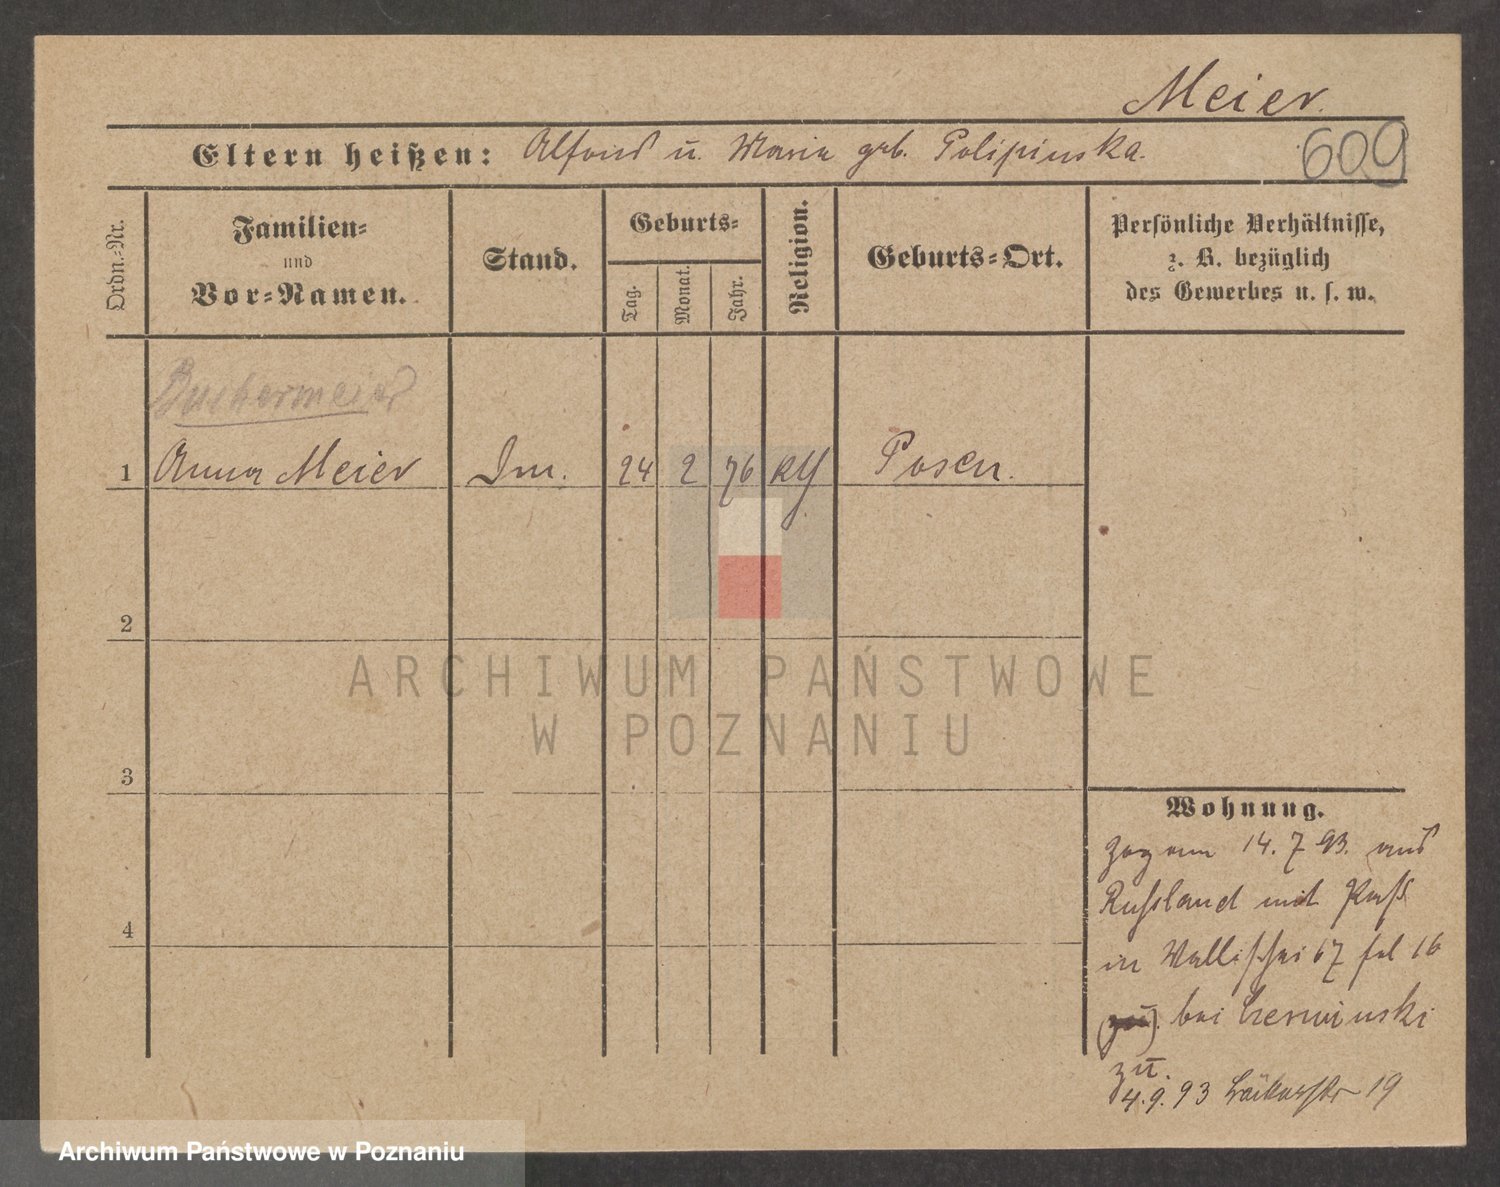 Meier.
Eltern heißen: Alfons u. Maria geb. Polipinska.
609
Ordn.-Nr.
Familien-
und
Vor-Namen.
Stand.
Geburts-
Tag.
Monat.
Jahr.
Religion.
Geburts-Ort.
Persönliche Verhältnisse,
z. B. bezüglich
des Gewerbes u. s. w.
1 Anna Meier 24 2 76 Posen.
2
3
4
Wohnung.
zog am 14. 7 93. aus
Russland mit Pass
in Wallischei 67 16
bei Czerwinski
zu.
4. 9. 93 Bäckerstr 19
ARCHIWUM PAŃSTWOWE
W POZNANIU
Archiwum Państwowe w Poznaniu